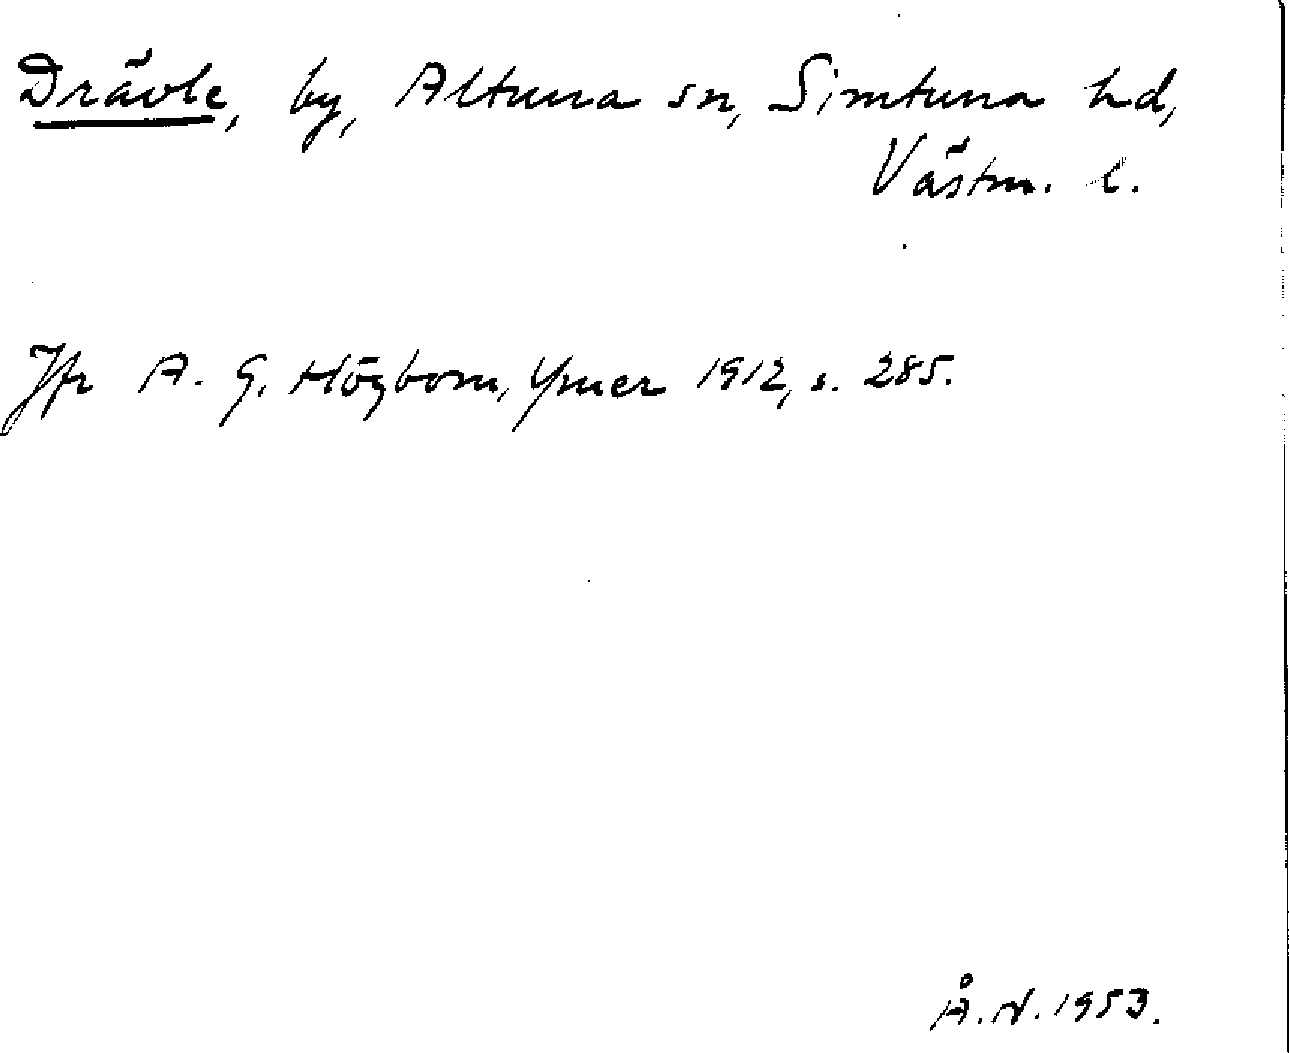 Drävle, by, Altuna sn, Simtuna hd,
Västm. l.
Jfr A. G. Högbom, Ymer 1912, s. 285.
Å. N. 1953.